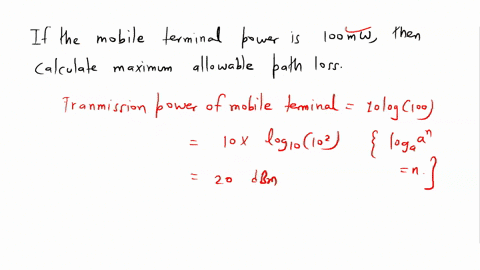 If the mobile terminal power is 100mW, then
calculate maximum allowable path loss.
Tranmission power of mobile terminal = 10log(100)
= 10 × log₁₀(10²) { logₐ aⁿ
= n. }
= 20 dBm